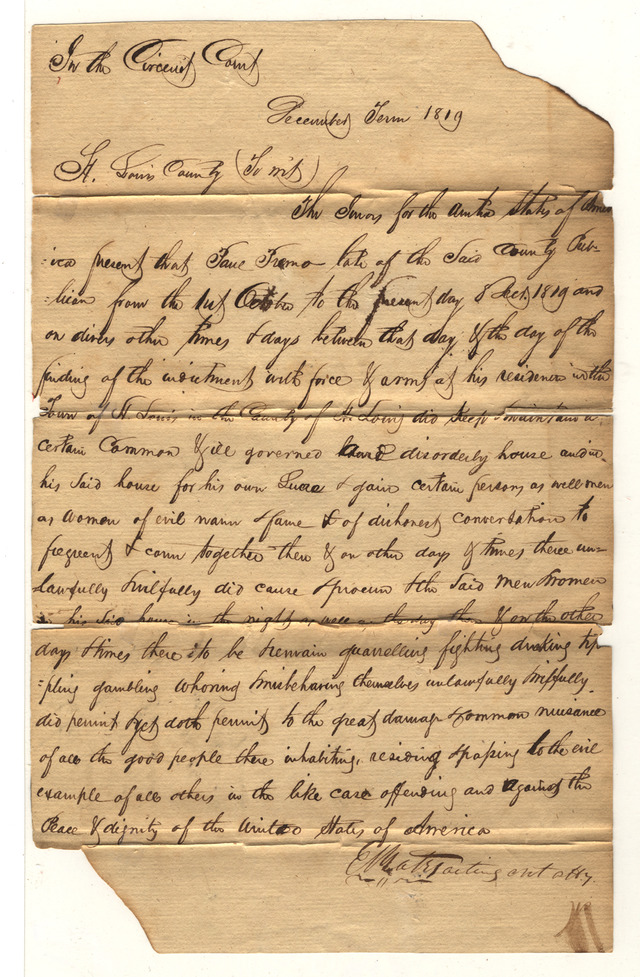 In the Circuit Court
December Term 1819
St. Louis County (To wit)
The Jurors for the United States of Amer
:ica present that late of the Said County Pub-
:lican from the 1st October to the present day 8 Dct. 1819 and
on divers other times & days between that day & the day of the
finding of the indictment with force & arms at his residence in the
Town of St Louis in the County of St Louis did keep & maintain a
certain Common & ill governed & disorderly house and in
his Said house for his own Lucre & gain certain persons as well men
as women of evil name & fame & of dishonest conversation to
frequent & come together then & on other days & times there un-
lawfully & wilfully did cause & procure & the said men & women
in his said house in the night as well as the day then & on the other
days & times there to be & remain quarrelling fighting drinking tip
=pling gambling whoring & misbehaving themselves unlawfully & wilfully
did permit & yet doth permit to the great damage & common nuisance
of all the good people there inhabiting, residing & passing to the evil
example of all others in the like case offending and against the
Peace & dignity of the United States of America
E Bates acting att atty.